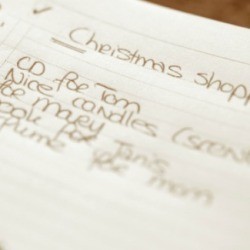 Christmas shopp
CD for Tom
Nice candles (scen
for Mary
book for Janis
for mom